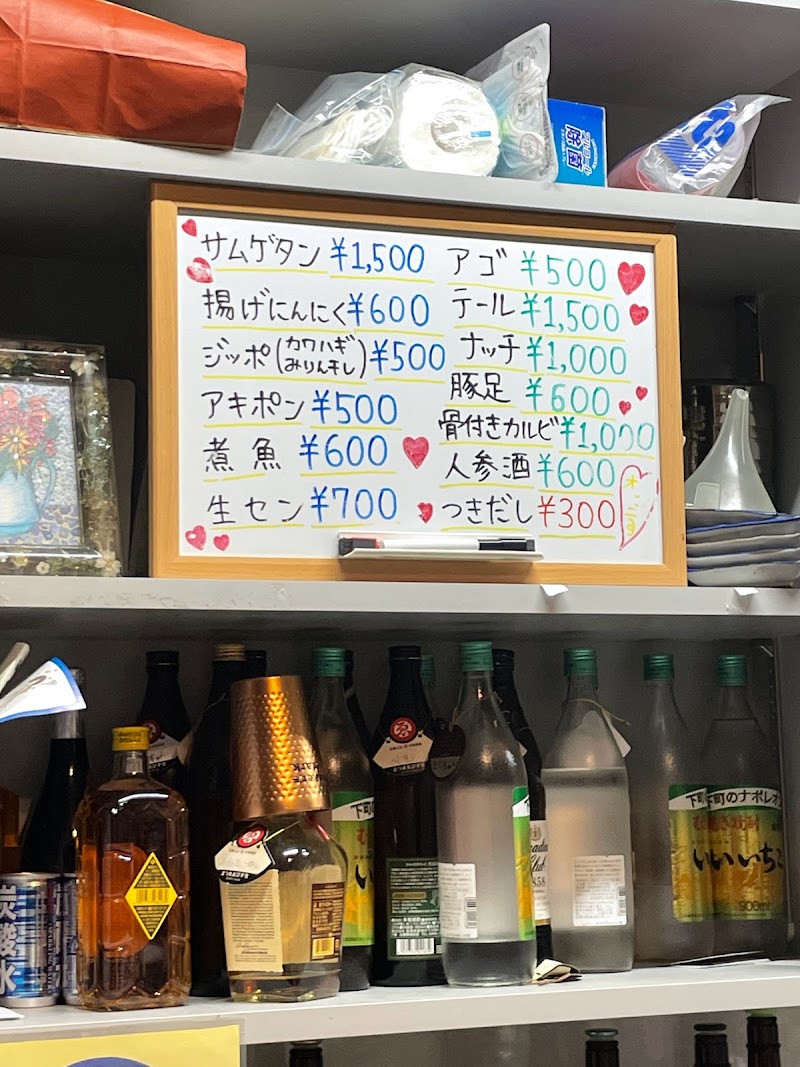 サムゲタン ¥1,500
揚げにんにく ¥600
ジッポ(カワハギみりん干し) ¥500
アキポン ¥500
煮魚 ¥600
生セン ¥700
アゴ ¥500
テール ¥1,500
ナッチ ¥1,000
豚足 ¥600
骨付きカルビ ¥1,000
人参酒 ¥600
つきだし ¥300
炭酸水
下町のナポレオン
いいちこ
900ml